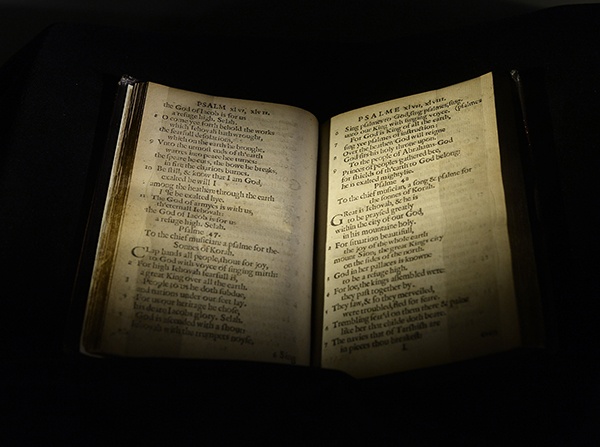 PSALM xlvi, xlvii.
the God of Iacob is for us
a refuge high. Selah.
8 O come yee forth behold the works
which Iehovah hath wrought,
the fearfull desolations,
which on the earth he brought.
9 Vnto the utmost ends of th'earth
warres into peace hee turnes:
the speare he cuts, the bowe he breaks,
in fire the chariots burnes.
10 Be still, & know that I am God,
exalted be will I
among the heathen: through the earth
I'le be exalted hye.
11 The God of armyes is with us,
th'eternall Iehovah:
the God of Iacob is for us
a refuge high. Selah.
Psalme 47.
To the chief musician: a psalme for the
Sonnes of Korah.
CLap hands all people, shout for joy,
to God with voyce of singing mirth:
2 For high Iehovah fearfull is,
a great King over all the earth.
3 People to us he doth subdue,
and nations under our feet lay.
4 For us our heritage he chose,
his deare Iacobs glory. Selah.
5 God is ascended with a shout:
Iehovah with the trumpets noyse.
6 Sing
PSALME xlvii, xlviii.
6 Sing psalmes to God, sing psalmes, sing
unto our King with singing voyce. (psalmes
7 For God is King of all the earth,
sing yee psalmes of instruction:
8 Over the heathen God will reigne
God sits his holy throne upon.
9 To the people of Abrahams God
Princes of peoples gathered bee,
for shields of th'earth to God belong:
he is exalted mightylie.
Psalme 48
To the chief musician, a song & psalme for
the sonnes of Korah.
GReat is Iehovah, & he is
to be praysed greatly
within the city of our God,
in his mountaine holy.
2 For situation beautifull,
the joy of the whole earth
mount Sion; the great Kings city
on the sides of the north.
3 God in her pallaces is knowne
to be a refuge high.
4 For loe, the kings assembled were:
they past together by.
5 They saw, & so they merveiled,
were troubled, fled for feare.
6 Trembling seiz'd on them there & paine
like her that childe doth beare.
7 The navies that of Tarshish are
in pieces thou breakest:
L